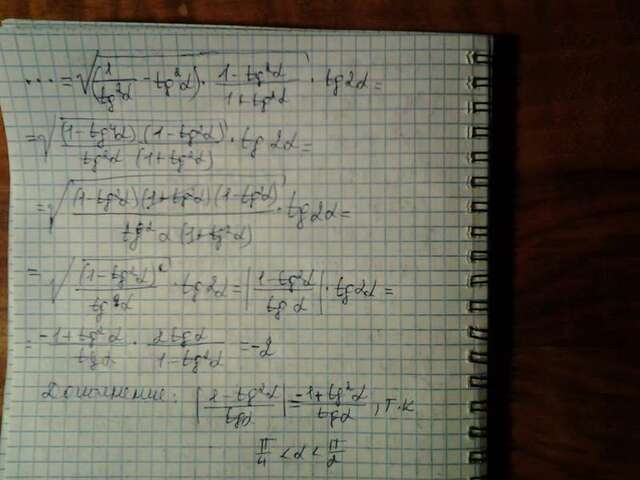 ... = √((1/tg²α - tg²α) · (1-tg²α)/(1+tg²α)) · tg2α =
= √((1-tg⁴α)(1-tg²α)/(tg²α(1+tg²α))) · tg2α =
= √((1-tg²α)(1+tg²α)(1-tg²α)/(tg²α(1+tg²α))) · tg2α =
= √((1-tg²α)²/tg²α) · tg2α = |(1-tg²α)/tgα| · tg2α =
= (-1+tg²α)/tgα · 2tgα/(1-tg²α) = -2
|(1-tg²α)/tgα| = (-1+tg²α)/tgα, т.к
π/4 < α < π/2